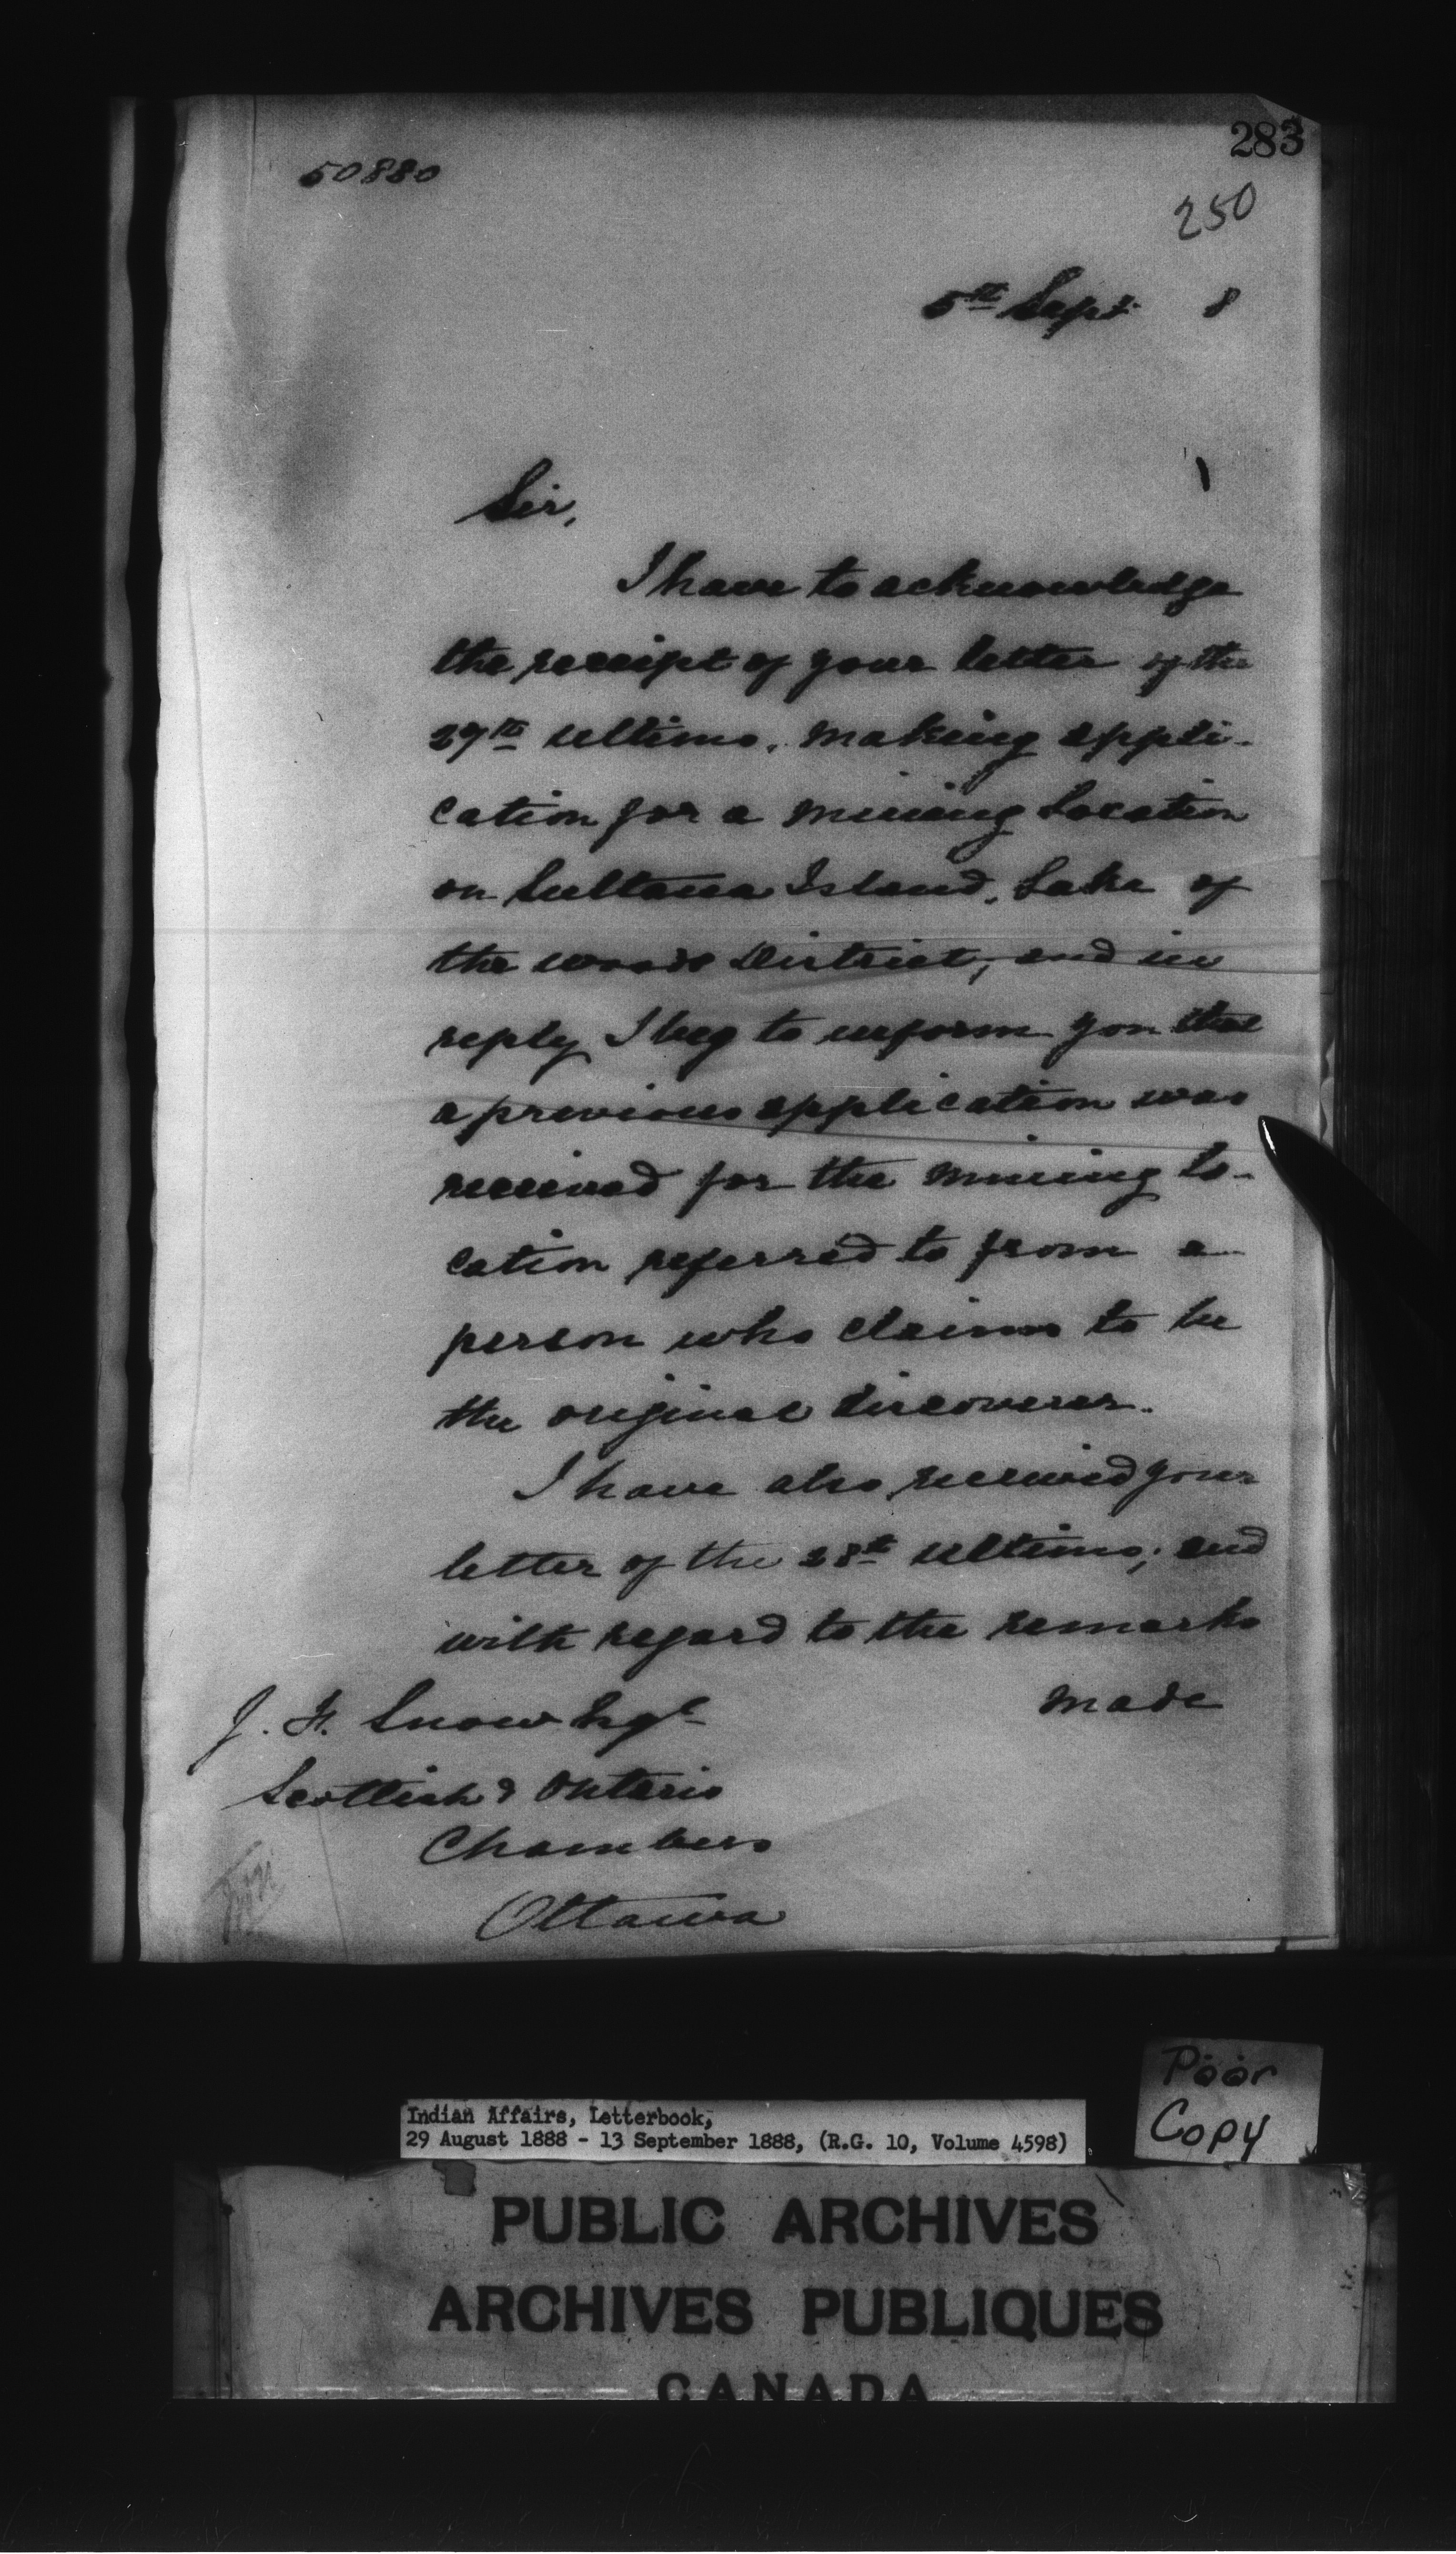 283
50880
250
5th Sept. 8
Sir,
I have to acknowledge
the receipt of your letter of the
27th ultimo, making appli-
cation for a mining location
on Sultana Island, Lake of
the woods District, and in
reply I beg to inform you that
a previous application was
received for the mining lo-
cation referred to from a
person who claims to be
the original discoverer.
I have also received your
letter of the 28th ultimo, and
with regard to the remarks
made
J. H. Snow Esqe
Scottish & Ontario
Chambers
Ottawa
Poor
Copy
Indian Affairs, Letterbook,
29 August 1888 - 13 September 1888, (R.G. 10, Volume 4598)
PUBLIC ARCHIVES
ARCHIVES PUBLIQUES
CANADA